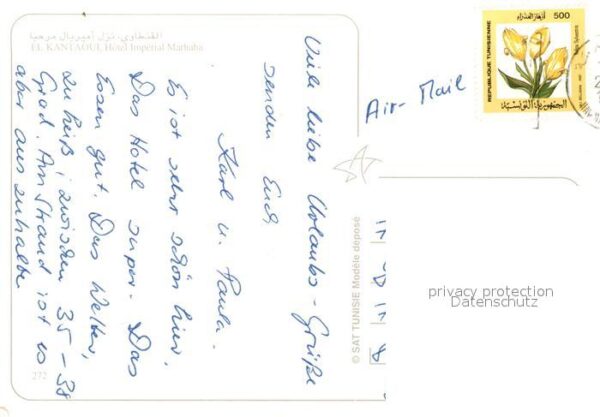 القنطاوي، نزل أمبريال مرحبا
EL KANTAOUI, Hôtel Impérial Marhaba
Viele liebe Urlaubs-Grüße
senden Euch
Karl u. Paula.
Es ist sehr schön hier,
Das Hotel super. Das
Essen gut. Das Wetter,
zu heiß, zwischen 35-38
Grad. Am Strand ist es
aber auszuhalte
272
© SAT TUNISIE Modèle déposé
Air-Mail
500
REPUBLIQUE TUNISIENNE
الجمهورية التونسية
privacy protection
Datenschutz